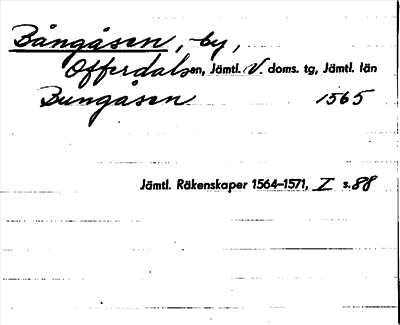 Bångåsen, by,
Offerdalsn, Jämtl. V. doms. tg, Jämtl. län
Bungåsen 1565
Jämtl. Räkenskaper 1564–1571, I s. 88